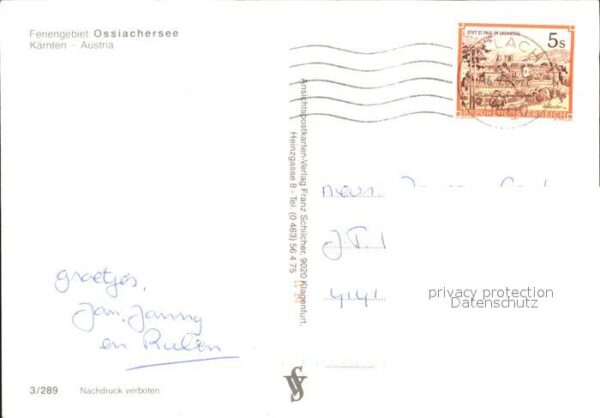 Feriengebiet Ossiachersee
Kärnten – Austria
STIFT ST. PAUL IM LAVANTTAL
5s
REPUBLIK ÖSTERREICH
Ansichtspostkarten-Verlag Franz Schilcher, 9020 Klagenfurt,
Heinzgasse 8 - Tel. (0 463) 56 4 75
J.T.
4141
privacy protection
Datenschutz
groetjes,
Jan, Janny
en Ruben
3/289 Nachdruck verboten